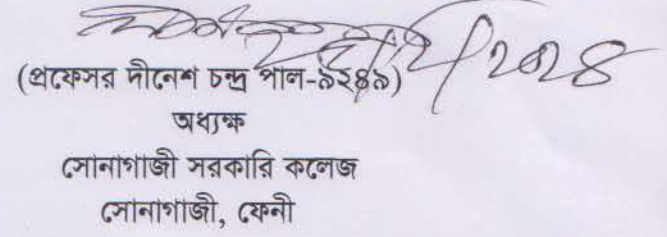 ২০২৪
(প্রফেসর দীনেশ চন্দ্র পাল-৯২৪৯)
অধ্যক্ষ
সোনাগাজী সরকারি কলেজ
সোনাগাজী, ফেনী